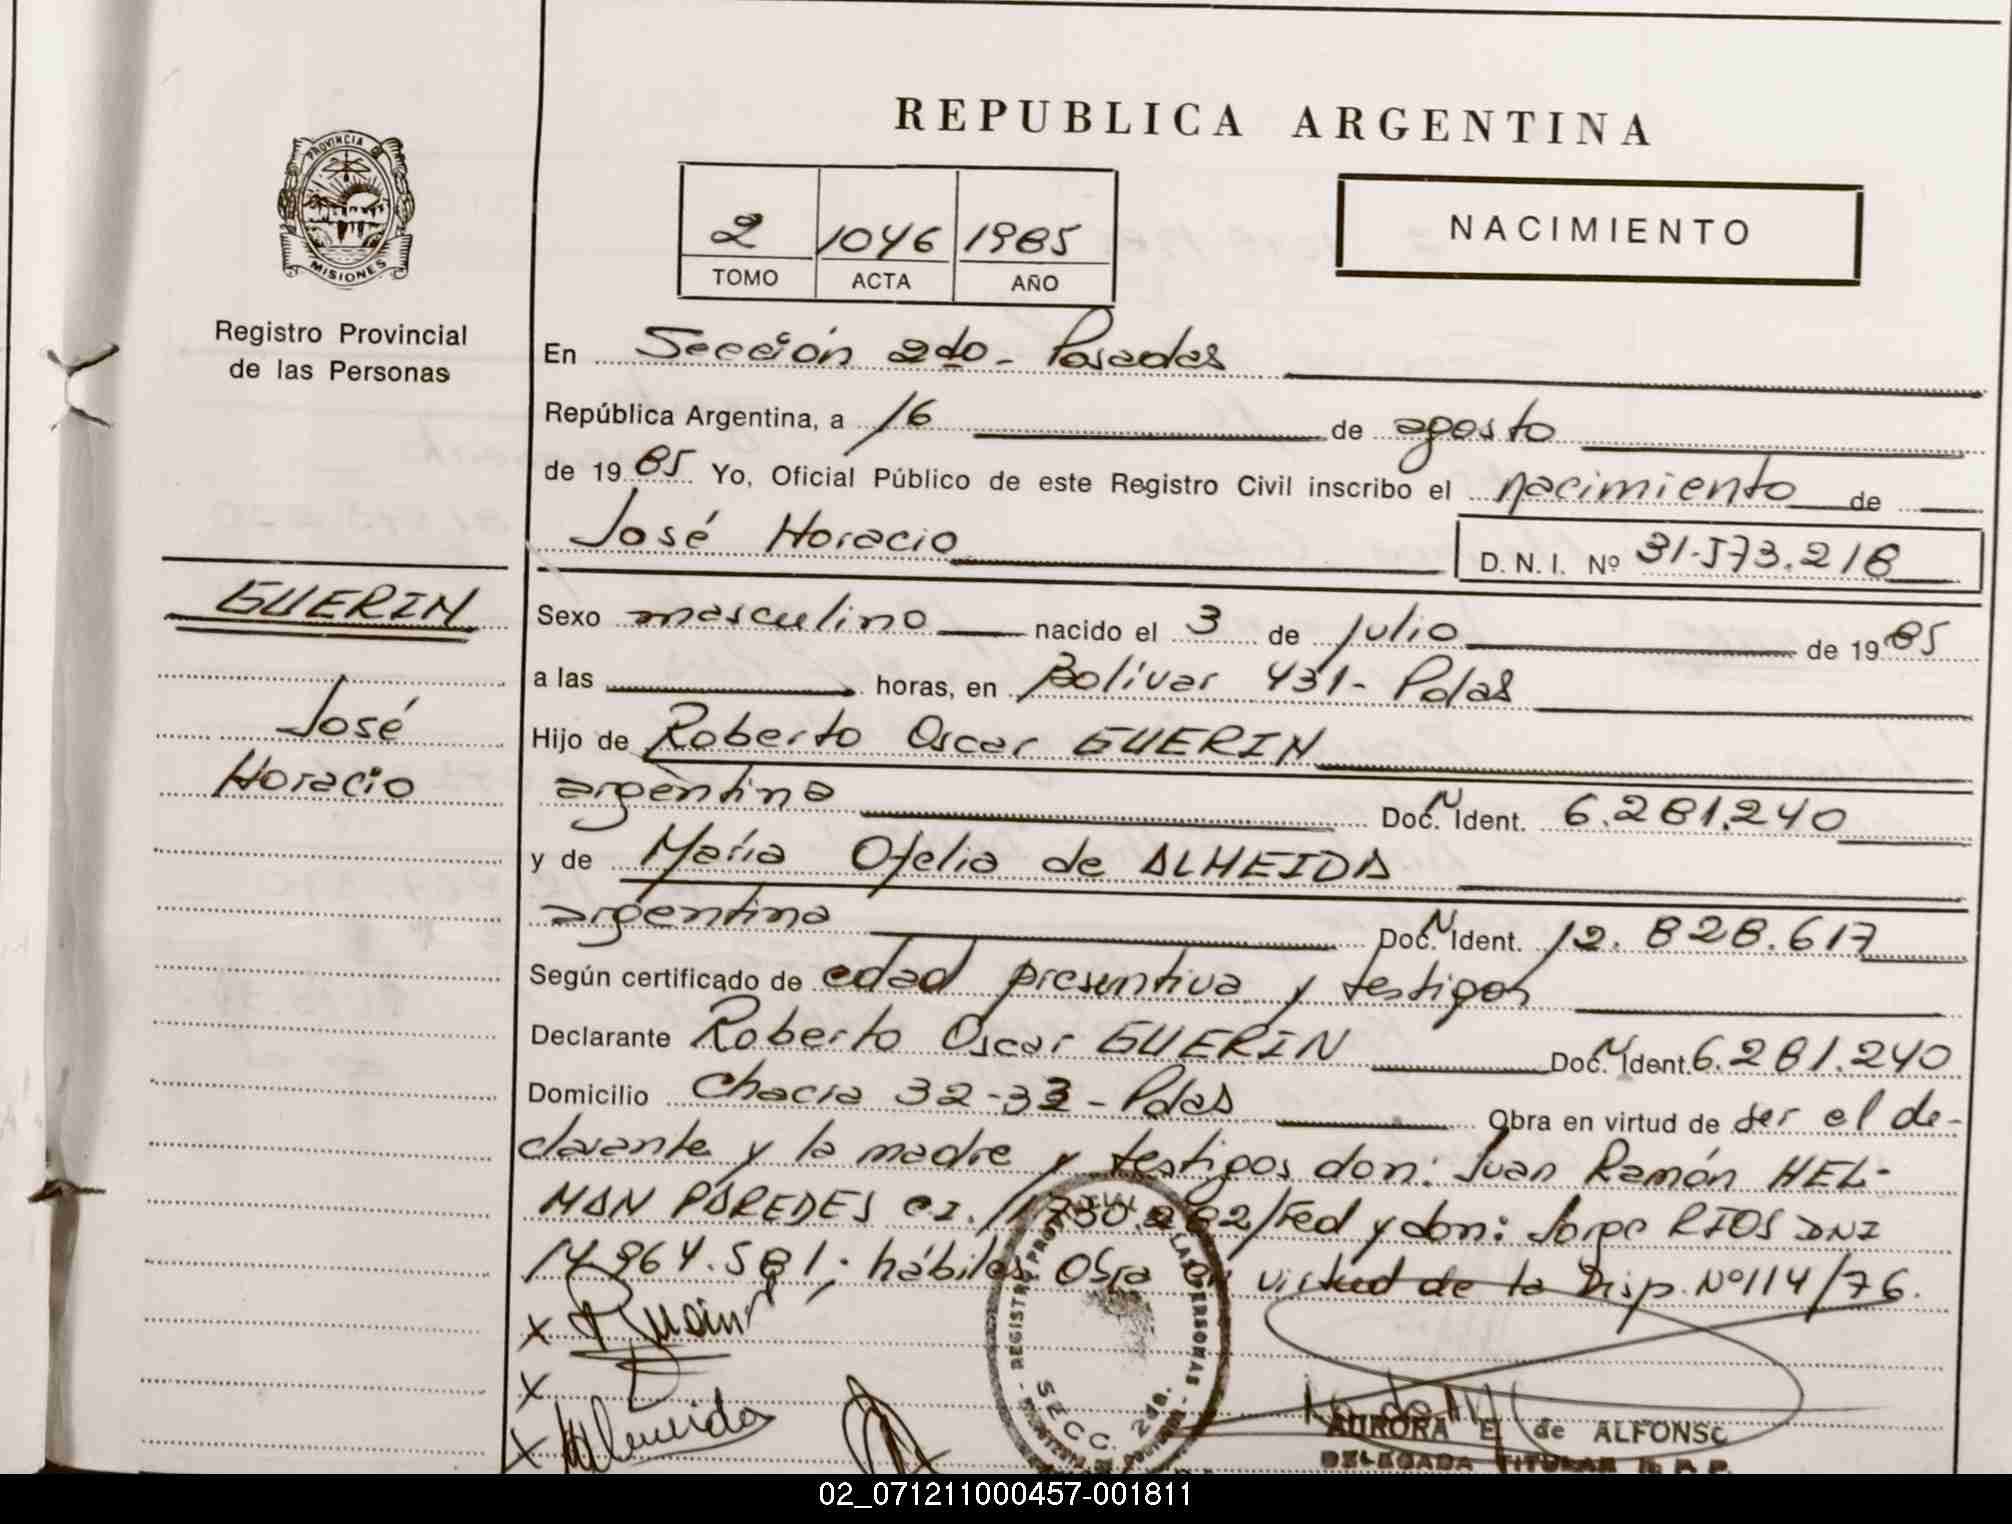 REPUBLICA ARGENTINA
PROVINCIA DE
MISIONES
Registro Provincial
de las Personas
2 1046 1985
TOMO ACTA AÑO
NACIMIENTO
En Sección 2do - Posadas
República Argentina, a 16 de agosto
de 1985 Yo, Oficial Público de este Registro Civil inscribo el nacimiento de
José Horacio
D. N. I. Nº 31.573.218
GUERIN
José
Horacio
Sexo masculino nacido el 3 de julio de 1985
a las horas, en Bolívar 431 - Pdas
Hijo de Roberto Oscar GUERIN
argentina Doc. Ident. 6.281.240
y de María Ofelia de ALMEIDA
argentina Doc. Ident. 12.828.617
Según certificado de edad presuntiva y testigos
Declarante Roberto Oscar GUERIN Doc. Ident. 6.281.240
Domicilio Chacra 32-33 - Pdas Obra en virtud de ser el de-
clarante y la madre y testigos don: Juan Ramón HEL-
MAN PAREDES C.I. /Fed y don: Jorge RIOS DNI
14.964.581; hábiles Obra en virtud de la Disp. Nº 114/76.
x
x
x Almeida
SECC. 2da.
AURORA E. de ALFONSO
DELEGADA TITULAR R. P. P.
02_071211000457-001811